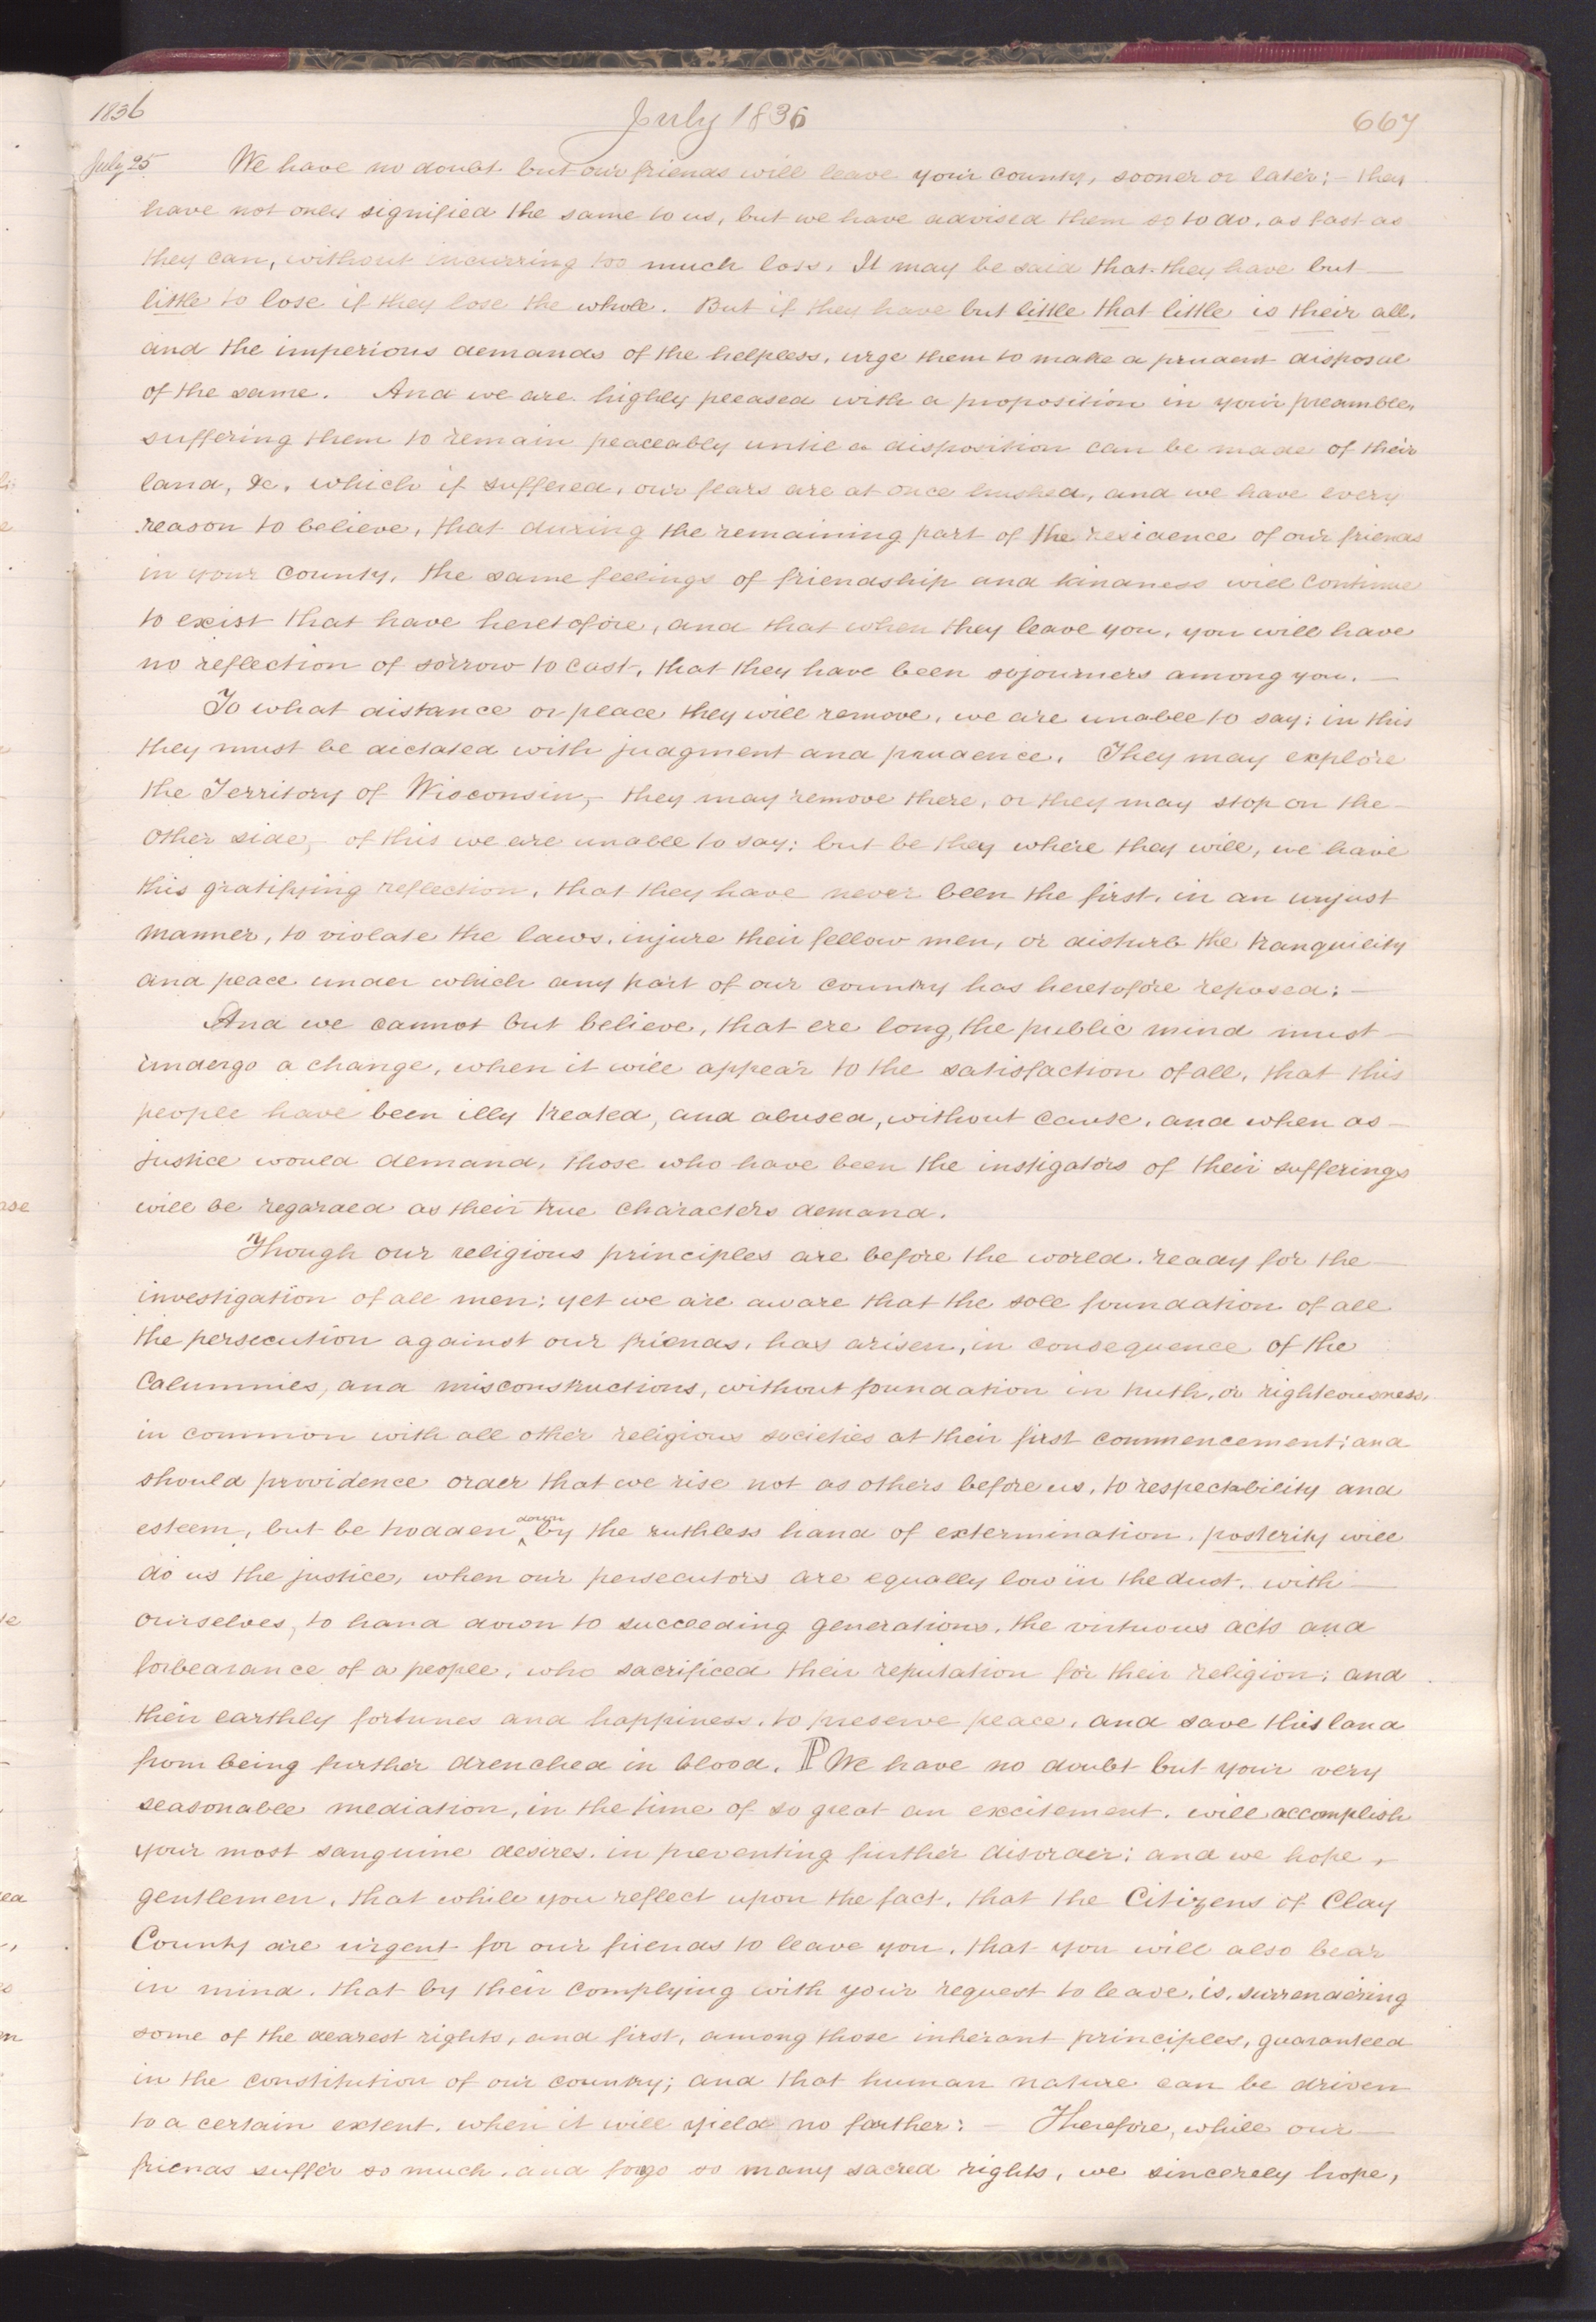 1836 July 1836 667
July 25 We have no doubt but our friends will leave your county, sooner or later;– they
have not only signified the same to us, but we have advised them so to do, as fast as
they can, without incurring too much loss. It may be said that they have but
little to lose if they lose the whole. But if they have but little that little is their all,
and the imperious demands of the helpless, urge them to make a prudent disposal
of the same. And we are highly pleased with a proposition in your preamble,
suffering them to remain peaceably until a disposition can be made of their
land, &c, which if suffered, our fears are at once hushed, and we have every
reason to believe, that during the remaining part of the residence of our friends
in your county, the same feelings of friendship and kindness will continue
to exist that have heretofore, and that when they leave you, you will have
no reflection of sorrow to cast, that they have been sojourners among you. —
To what distance or place they will remove, we are unable to say: in this
they must be dictated with judgment and prudence. They may explore
the Territory of Wisconsin,– they may remove there, or they may stop on the
other side,– of this we are unable to say: but be they where they will, we have
this gratifying reflection, that they have never been the first, in an unjust
manner, to violate the laws, injure their fellow men, or disturb the tranquility
and peace under which any part of our country has heretofore reposed: —
And we cannot but believe, that ere long, the public mind must
undergo a change, when it will appear to the satisfaction of all, that this
people have been illy treated, and abused, without cause, and when as
justice would demand, those who have been the instigators of their sufferings
will be regarded as their true characters demand.
Though our religious principles are before the world. ready for the
investigation of all men; yet we are aware that the sole foundation of all
the persecution against our friends, has arisen, in consequence of the
Calumnies, and misconstructions, without foundation in truth, or righteousness,
in common with all other religious societies at their first commencement; and
should providence order that we rise not as others before us, to respectability and
esteem, but be trodden down by the ruthless hand of extermination. posterity will
do us the justice, when our persecutors are equally low in the dust. with
ourselves, to hand down to succeeding generations, the virtuous acts and
forbearance of a people, who sacrificed their reputation for their religion; and
their earthly fortunes and happiness, to preserve peace, and save this land
from being further drenched in blood. ℙ We have no doubt but your very
seasonable mediation, in the time of so great an excitement. will accomplish
your most sanguine desires. in preventing further disorder; and we hope,
gentlemen, that while you reflect upon the fact, that the Citizens of Clay
County are urgent for our friends to leave you, that you will also bear
in mind. that by their complying with your request to leave, is, surrendering
some of the dearest rights, and first, among those inherant principles, guaranteed
in the constitution of our country; and that human nature can be driven
to a certain extent. when it will yield no farther: — Therefore, while our
friends suffer so much, and forgo so many sacred rights, we sincerely hope,